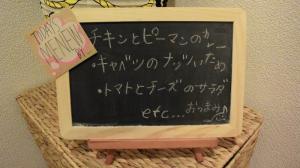 TODAY'S
MENEW!
チキンとピーマンのカレー
・キャベツのナッツいため
・トマトとチーズのサラダ
etc... おつまみ